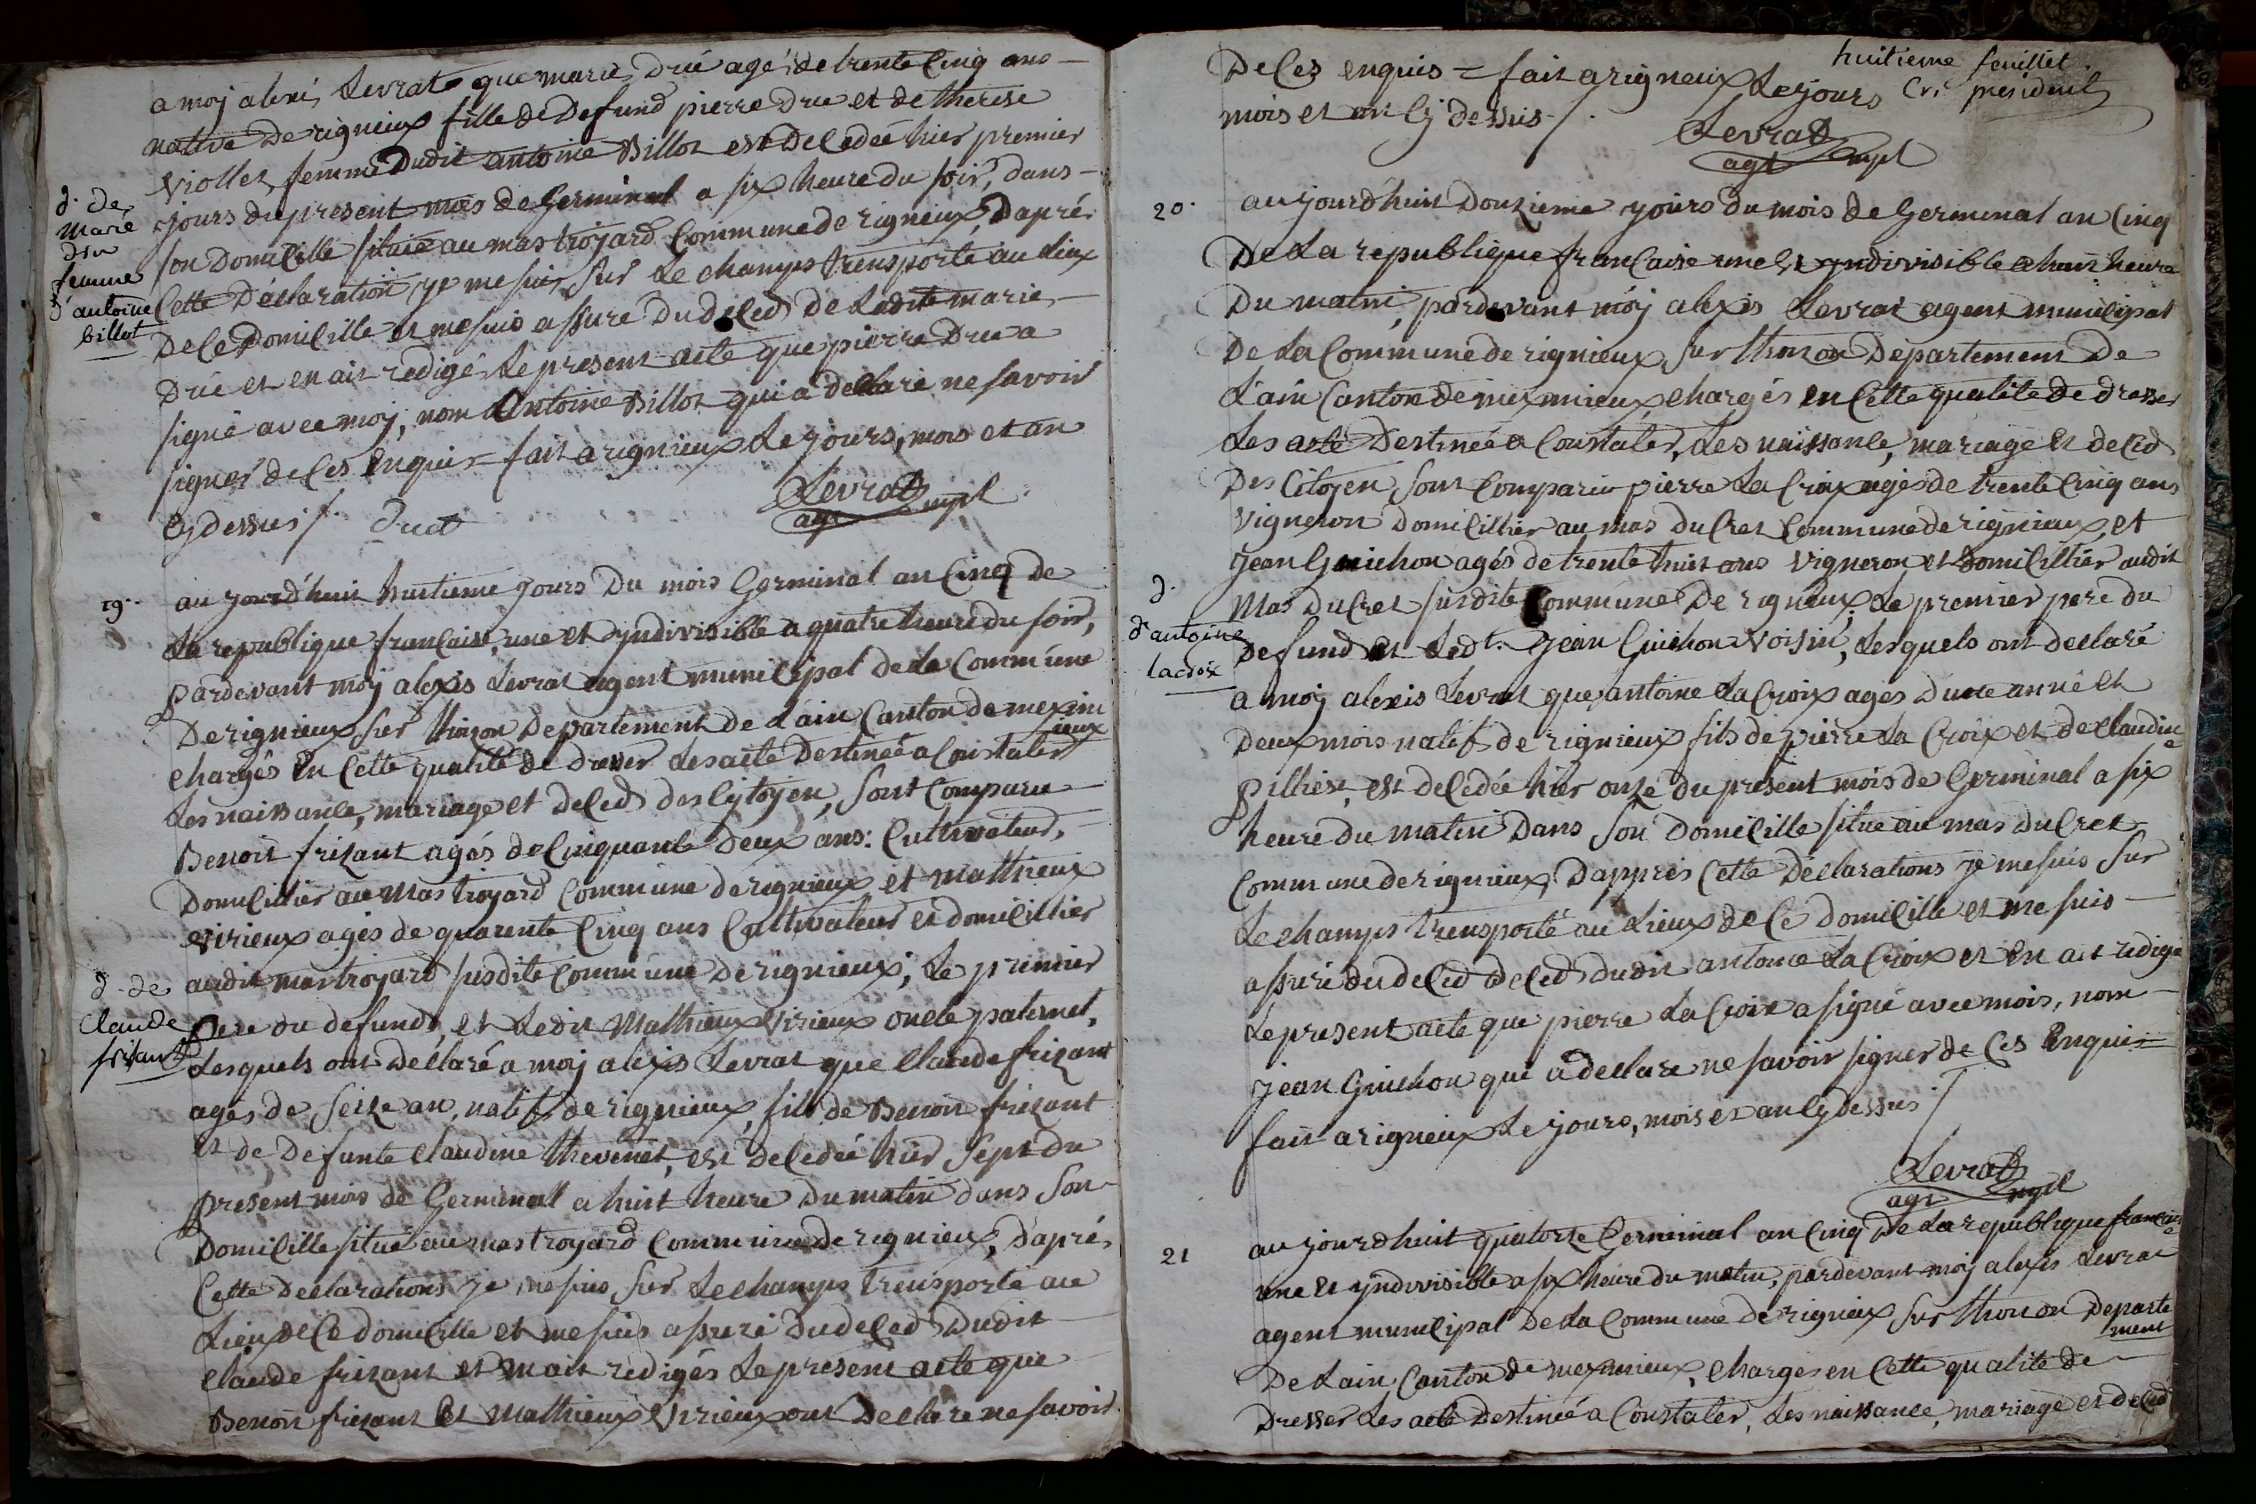 a moy alexi Levrat que marie Drue agé de trente Cinq ans
native De rignieux fille de Defund pierre Drue et de therese
Viollet, femme Dudit antoine Billot est Decedeé hier premier
jours du present mois de Germinal a six heure du soir, dans
d. de
marie
dru
femme
d'antoine
billot
son Domicille situé au mas trojard Commune de rignieux, Daprés
Cette Déclaration je me suis sur Le champs trensporté au Lieux
De Ce Domicille et me suis assure Du deced de Ladite marie
Drue et en ait redigé Le present acte que pierre Drue a
signé avec moy, nom antoine Billot qui a declaré ne savoir
signer de Ces Enquis = fait a rignieux Le jours, mois et an
Cy dessus /.
Levrat
agt mpl
19.
au jourd'huit huitieme jours Du mois Germinal an Cinq De
La republique française, une et yndivisible a quatre heure du soir,
pardevant moy alexis Levrat agent municipal de La Commune
De rignieux sur thoizon Departement de L'ain Canton de mexim
ieux
chargés En Cette qualité de dresser Les acte Destineé a Constater
Les naissance, mariage et deced des Cytoyen, sont Comparu
Benoit frizant agés de Cinquante Deux ans: Cultivateur,
Domicillier au Mas trojard Commune de rignieux et Mathieux
Virieux agés de quarente Cinq ans Cultivateur et domicillier
audit mas trojard susdite Commune De rignieux; Le premier
d. de
Claude
frisant
Pere du defund, et Ledit Mathieux Virieux oncle paternel,
Lesquels ont Declaré a moy alexis Levrat que Claude frizant
agés de seize an, natif de rignieux, fils de Benoit frizant
et de Defunte Claudine thevenet, est decedeé hier sept du
present mois de Germinall a huit heure Du matin dans son
Domicille situé au mas trojard Commune de rignieux, D'aprés
Cette Declarations je me suis sur Le champs trensporté au
Lieux de Ce domicille et me suis assuré Du deced Dudit
Claude frizant et en ait redigés Le present acte que
Benoit frizant et Mathieux Virieux ont Declare ne savoir
huitieme feuillet.
président
De Ces enquis = fait a rignieux Le jours
mois et an Cy dessus /.
Levrat
agt mpl
20.
au jourd'huit Douzieme jours du mois de Germinal an Cinq
De La republique francaise une Et yndivisible a huit heure
Du matin, pardevant moy alexis Levrat agent municipal
De La Commune de rignieux sur thoizon Departement De
L'ain Canton de meximieux, chargés en Cette qualité De dresser
Les acte Destineé a Constater, Les naissance, mariage Et deced
Des Citoyen, sont Comparu pierre La Croix agés de trente Cinq ans
Vigneron Domicillier au mas du Cret Commune de rignieux, et
jean Guichon agés de trente huit ans Vigneron et domicillier audit
Mas du Cret susdite Commune De rignieux, Le premier pere du
d.
d'antoine
lacroix
Defund et Ledt. jean Guichon Voisin, Lesquels ont declaré
a moy alexis Levrat que antoine La Croix agés dune anné et
Deux mois natif de rignieux fils de pierre La Croix et de Claudin
e
pilliet, est decedeé hier onze du present mois de Germinal a six
heure du matin Dans son Domicille situé au mas du Cret
Commune de rignieux, Dapprés Cette Déclarations je me suis sur
Le champs trensporté au Lieux de Ce domicille et me suis
assuré du deced deced dudit antoine La Croix et en ait redige
Le present acte que pierre La Croix a signé avec mois, nom
jean Guichon qui a declare ne savoir signer de Ces Enquis =
fait a rignieux Le jours, mois et an Cy dessus /.
Levrat
agt mpl
21
au jourd'huit quatorze Germinal an Cinq De La republique francais
e
une et yndivisible a six heure du matin, pardevant moy alexis Levrat
agent municipal De La Commune De rignieux sur thoizon Departe
ment
De L'ain Canton de meximieux, chargés en Cette qualité de
Dresser Les acte Destineé a Constater, Les naissance, mariage et deced